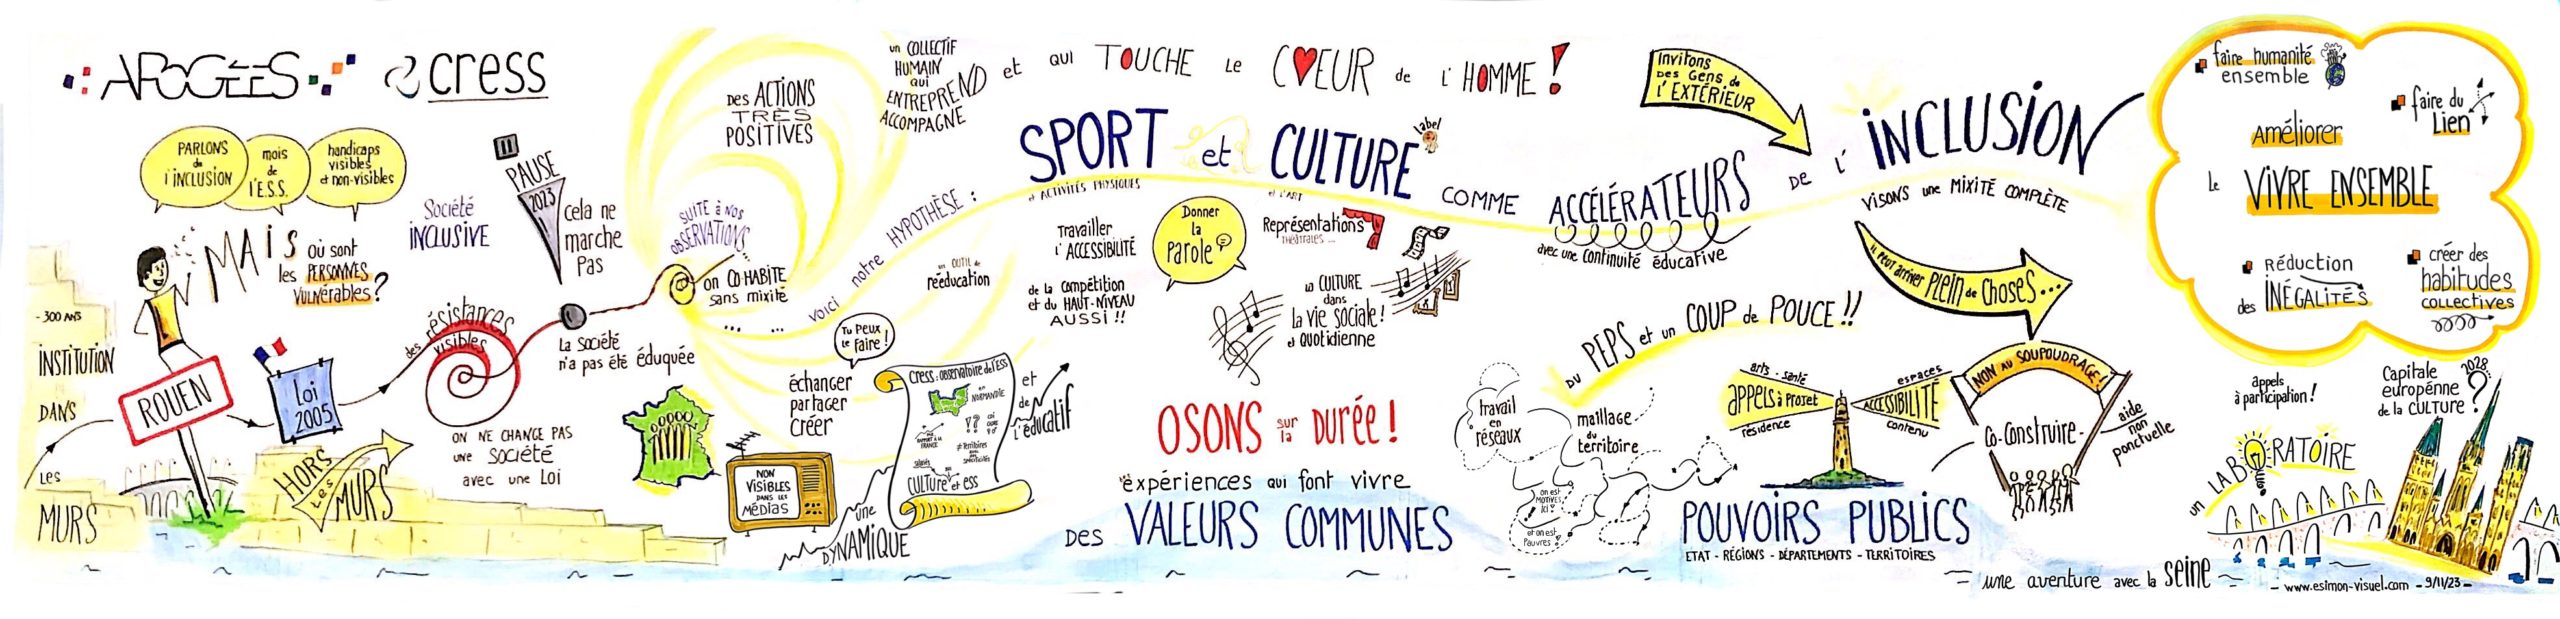 APOGÉES
cress
PARLONS
de
l'INCLUSION
mois
de
l'E.S.S.
handicaps
visibles
et non-visibles
MAIS
Où sont
les PERSONNES
VULNÉRABLES ?
Société
INCLUSIVE
PAUSE
2023
cela ne
marche
pas
- 300 ANS
INSTITUTION
DANS
LES
MURS
ROUEN
Loi
2005
HORS
Les
MURS
des résistances
visibles
ON NE CHANGE PAS
une SOCIÉTÉ
avec une LOI
La Société
n'a pas été éduquée
SUITE à NOS
OBSERVATIONS...
on CO-HABITE
sans mixité
... ...
Des ACTIONS
TRÈS
POSITIVES
un COLLECTIF
HUMAIN
qui
ENTREPREND
ACCOMPAGNE
et qui TOUCHE Le CŒUR de L'HOMME !
voici notre HYPOTHÈSE :
SPORT et CULTURE
label
et ACTIVITÉS PHYSIQUES
et L'ART
COMME
ACCÉLÉRATEURS
avec une continuité éducative
DE L'
INCLUSION
VISONS une MIXITÉ COMPLÈTE
Invitons
Des Gens de
l'EXTÉRIEUR
un OUTIL de
rééducation
Travailler
l'ACCESSIBILITÉ
de la compétition
et du HAUT-NIVEAU
AUSSI !!
Donner
la
Parole
Représentations
THÉÂTRALES ...
La CULTURE
dans
la vie sociale !
et quotidienne
Tu Peux
le faire !
échanger
partager
créer
NON
VISIBLES
DANS LES
MÉDIAS
une
DYNAMIQUE
Cress : observatoire de l'ESS
en
NORMANDIE
RAPPORT À LA
FRANCE
# Territoires
salariés
CULTURE et ESS
et
de
l'éducatif
OSONS sur la DURÉE !
expériences qui font vivre
DES VALEURS COMMUNES
DU PEPS et un COUP de POUCE !!
travail
en
réseaux
maillage
du
territoire
on est
MOTIVÉS
ici !
et on est
Pauvres !
arts - santé
appels à Projet
résidence
espaces
ACCESSIBILITÉ
contenu
POUVOIRS PUBLICS
ETAT - RÉGIONS - DÉPARTEMENTS - TERRITOIRES
il peut arriver PLEIN de CHOSES...
NON AU SOUPOUDRAGE !
Co-Construire
aide
non
ponctuelle
faire humanité
ensemble
faire du
Lien
Améliorer
le VIVRE ENSEMBLE
RÉDUCTION
des INÉGALITÉS
créer des
habitudes
COLLECTIVES
appels
à participation !
Capitale
européenne
de la CULTURE ?
2028...
un LABORATOIRE
une aventure avec la Seine
- www.esimon-visuel.com - 9/11/23 -